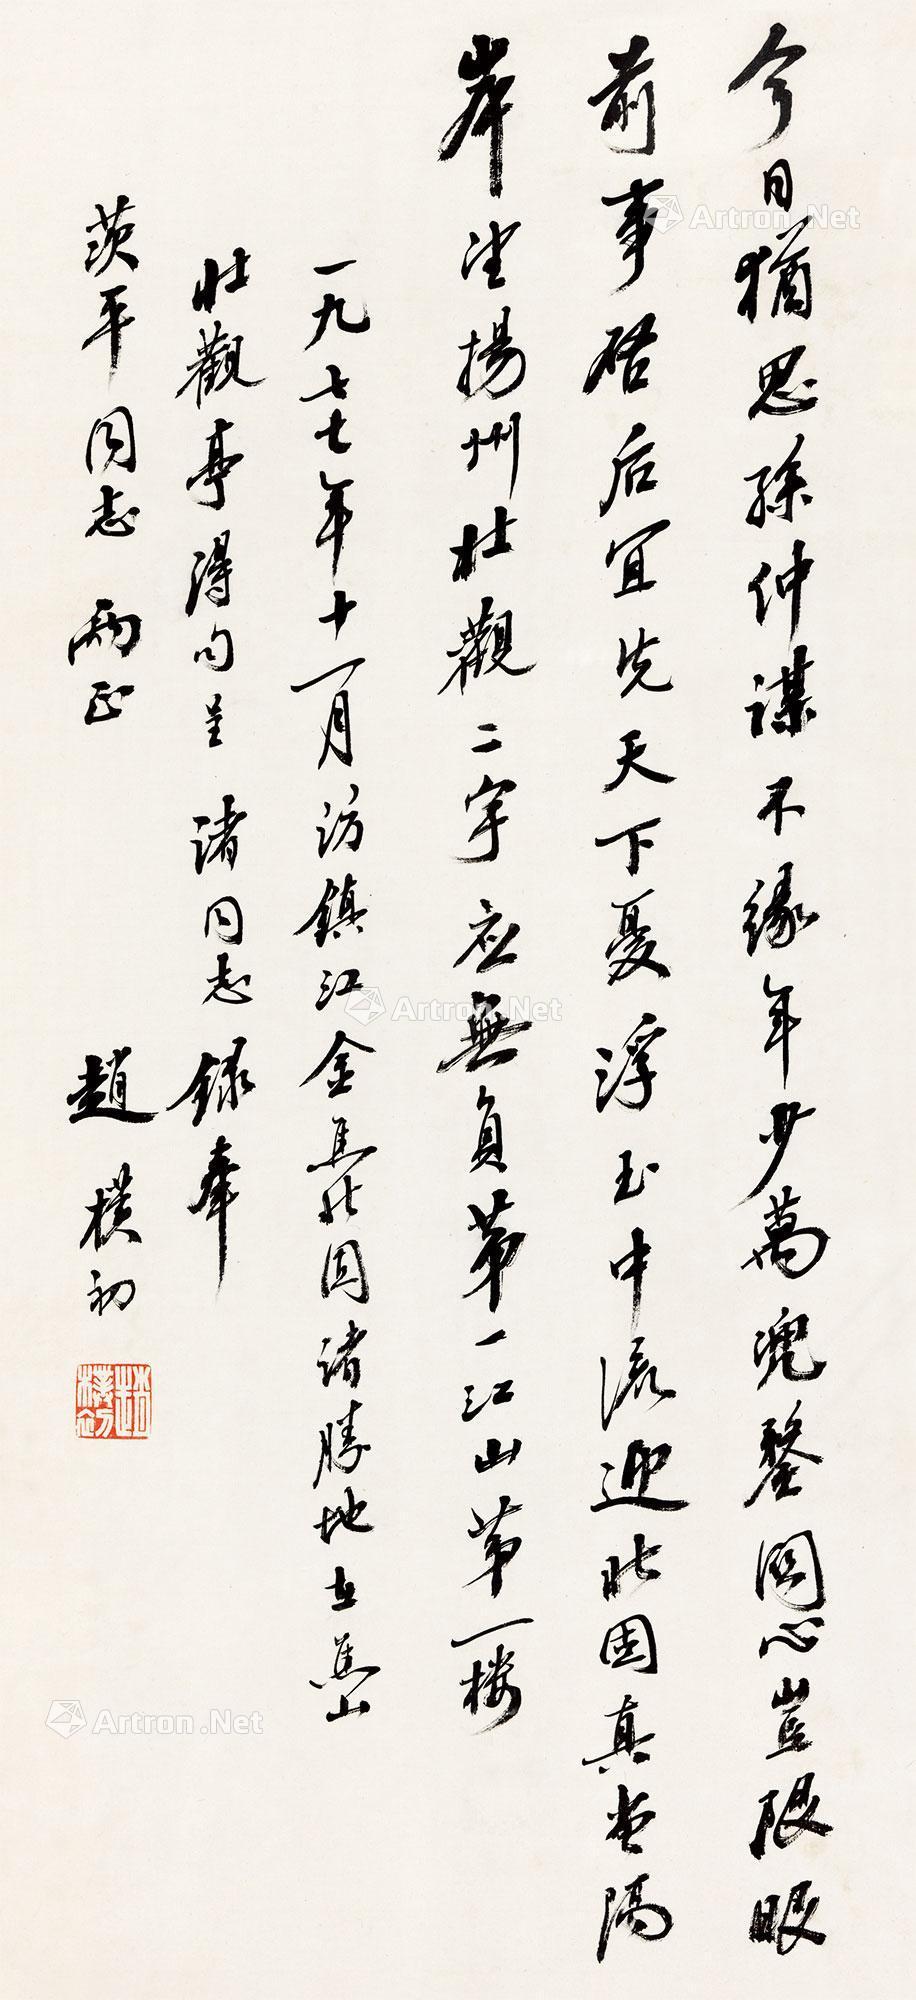 今日猶思孫仲謀不緣年少萬兜鍪關心豈限眼
前事启后宜先天下憂浮玉中流迎北固真堂隔
岸望揚州壯觀二字应無負第一江山第一楼
一九七七年十一月訪鎮江金焦北固諸勝地在焦山
壯觀亭得句呈 諸同志 録奉
茨平同志 兩正 趙樸初
趙樸初
Artron.Net
Artron.Net
Artron.Net